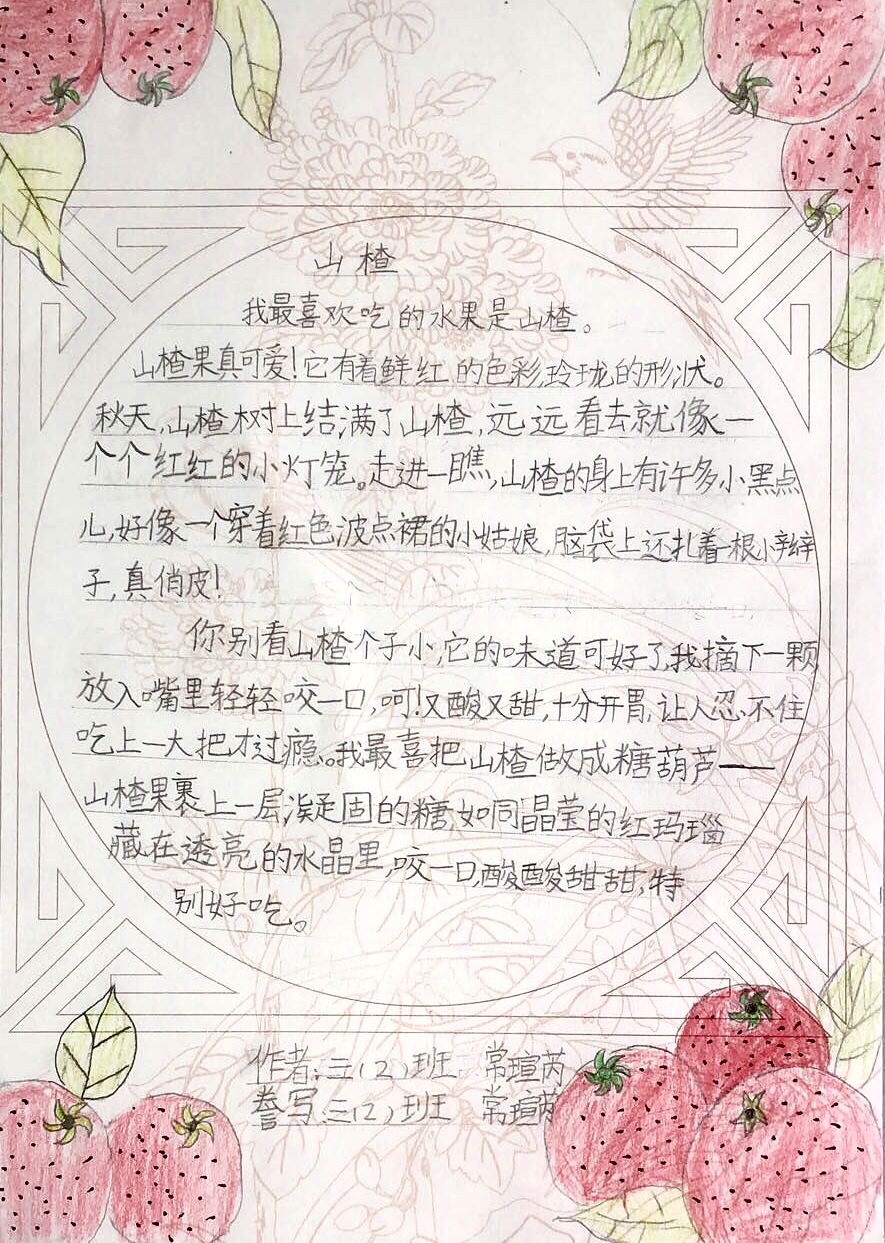 山楂
我最喜欢吃的水果是山楂。
山楂果真可爱!它有着鲜红的色彩,玲珑的形状。
秋天,山楂树上结满了山楂,远远看去就像一
个个红红的小灯笼。走进一瞧,山楂的身上有许多小黑点
儿,好像一个穿着红色波点裙的小姑娘,脑袋上还扎着一根小辫
子,真俏皮!
你别看山楂个子小,它的味道可好了,我摘下一颗
放入嘴里轻轻咬一口,呵!又酸又甜,十分开胃,让人忍不住
吃上一大把才过瘾。我最喜把山楂做成糖葫芦——
山楂果裹上一层凝固的糖,如同晶莹的红玛瑙
藏在透亮的水晶里,咬一口,酸酸甜甜,特
别好吃。
作者:三(2)班 常瑄芮
誊写:三(2)班 常瑄芮